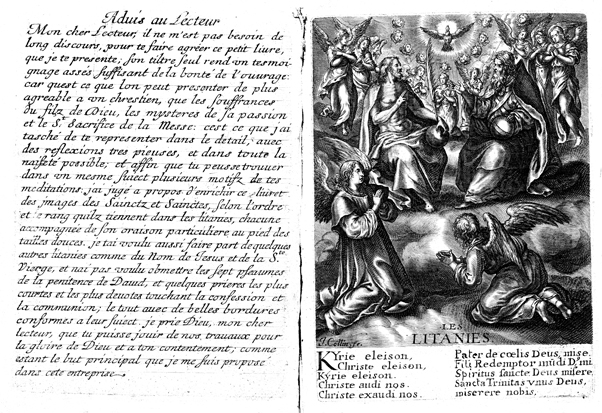 Aduis au Lecteur
Mon cher Lecteur, il ne m'est pas besoin de
long discours, pour te faire agréer ce petit liure,
que je te presente; son tiltre seul rend vn tesmoi-
gnage assés suffisant de la bonté de l'ouurage:
car quest ce que lon peut presenter de plus
agreable a vn chrestien, que les souffrances
du filz de Dieu, les mysteres de sa passion
et le St Sacrifice de la Messe: cest ce que jai
tasché de te representer dans le detail, auec
des reflexions tres pieuses, et dans toute la
naifueté possible; et affin que tu peusse trouuer
dans vn mesme suiect plusieurs motifz de tes
meditations jai jugé a propos d'enrichir ce liuret
des jmages des Sainctz et Sainctes, selon l'ordre
et le rang quilz tiennent dans les litanies, chacune
accompagnée de son oraison particuliere au pied des
tailles douces. je tai voulu aussi faire part de quelques
autres litanies comme du Nom de Jesus et de la Ste
Vierge, et nai pas voulu obmettre les sept pseaumes
de la penitence de Dauid, et quelques prieres les plus
courtes et les plus deuotes touchant la confession et
la communion; le tout auec de belles bordures
conformes a leur suiect. je prie Dieu, mon cher
lecteur, que tu puisse jouir de nos trauaux pour
la gloire de Dieu et a ton contentement; comme
estant le but principal que je me suis proposé
dans cete entreprise
J. Collin, fe.
LES
LITANIES
Kyrie eleison,
Christe eleison,
Kyrie eleison.
Christe audi nos.
Christe exaudi nos.
Pater de cœlis Deus, mise.
Fili Redemptor mūdi Ds mi.
Spiritus sancte Deus misere.
Sancta Trinitas vnus Deus,
miserere nobis.